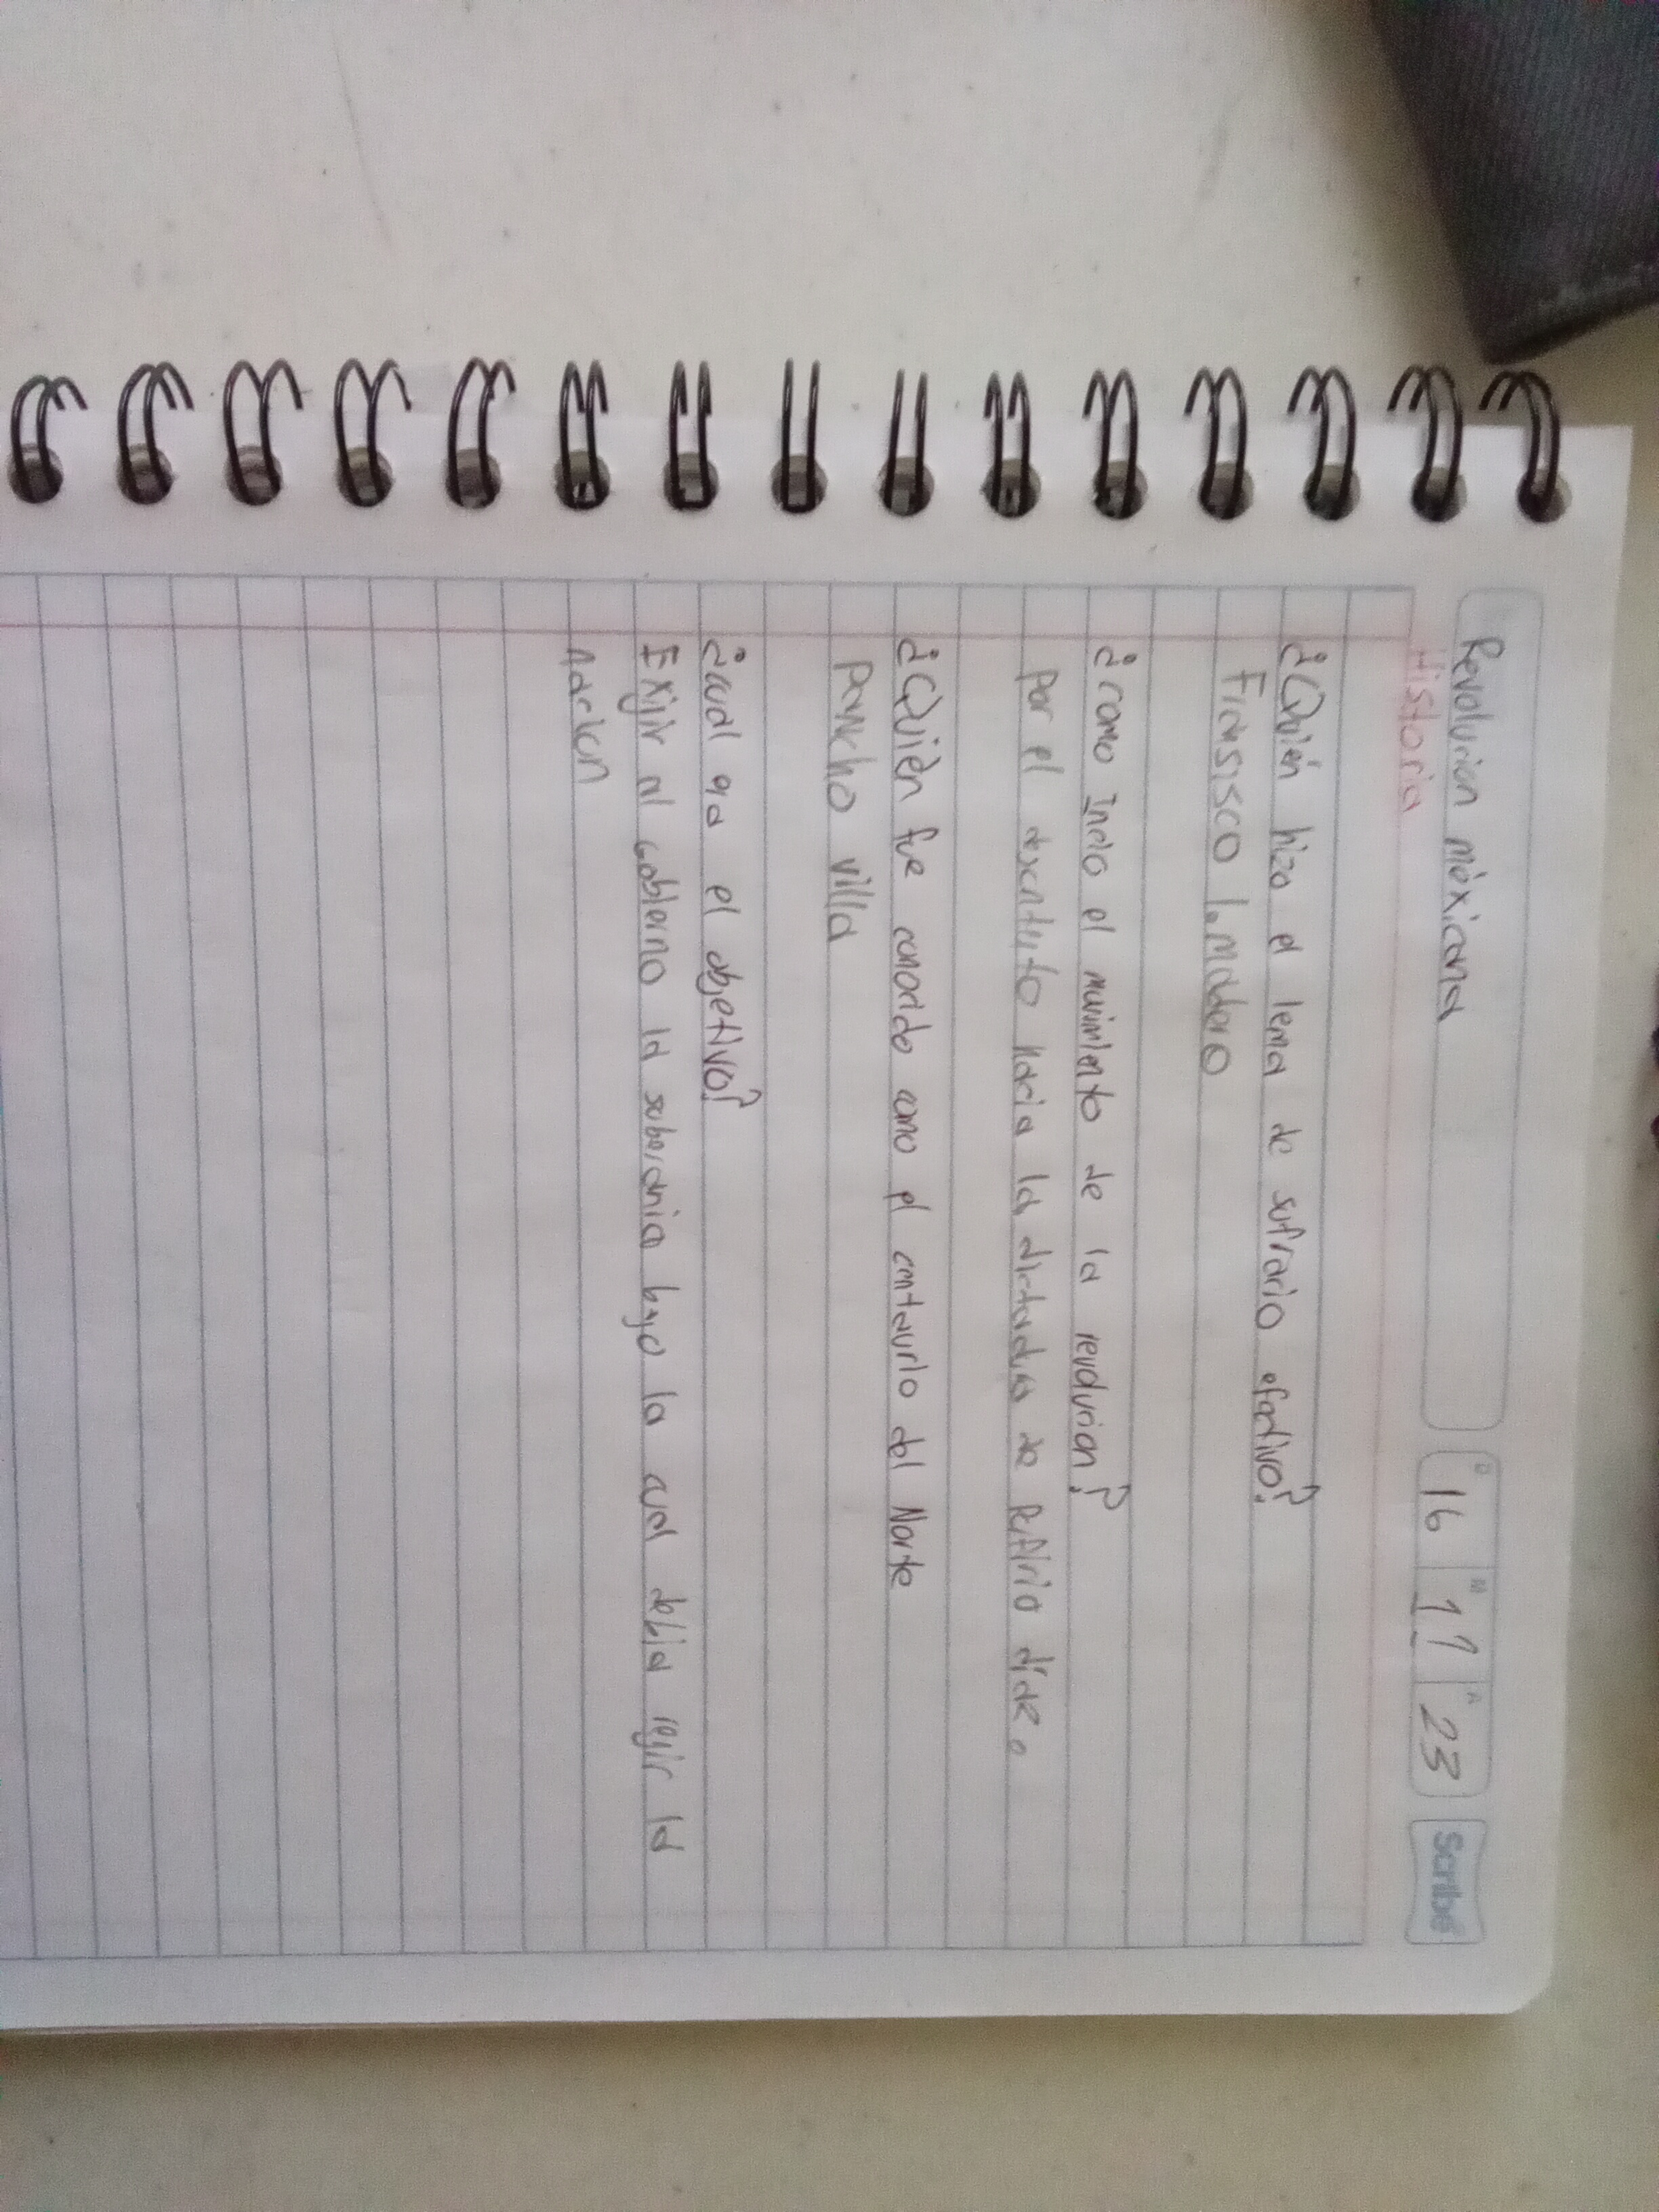 Revolucion méxicana
D 16 M 11 A 23
Scribe
Historia
¿Quién hizo el lema de sufrario efectivo?
Fransisco I. Madero
¿como Inicio el movimiento de la revolucion?
Por el descntento hacia la dictadura de Porfirio diaz.
¿Quièn fue conocido como el centaurlo del Norte
Pancho villa
¿cual era el objetivo?
Exijir al gobierno la soberania bajo la cual debia regir la
Nacion